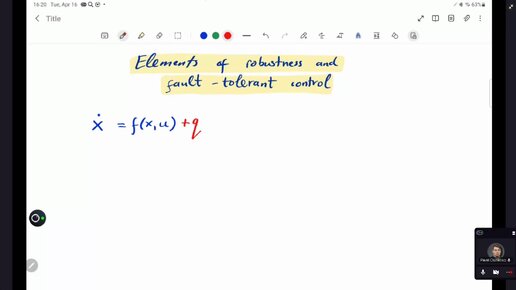 16:20 Tue, Apr 16
63%
Title
Elements of robustness and
fault-tolerant control
ẋ = f(x,u) +q